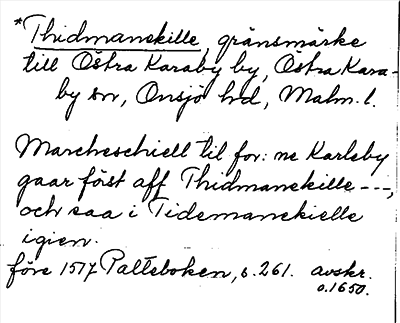 *Thidmanskille, gränsmärke
till Östra Karaby by, Östra Kara-
by sn, Onsjö hd, Malm. l.
Marcheschiell til for: ne Karleby
gaar först aff Thidmanskille ---,
och saa i Tidemanskielle
igien.
före 1517 Palteboken, s. 261. avskr.
o. 1650.